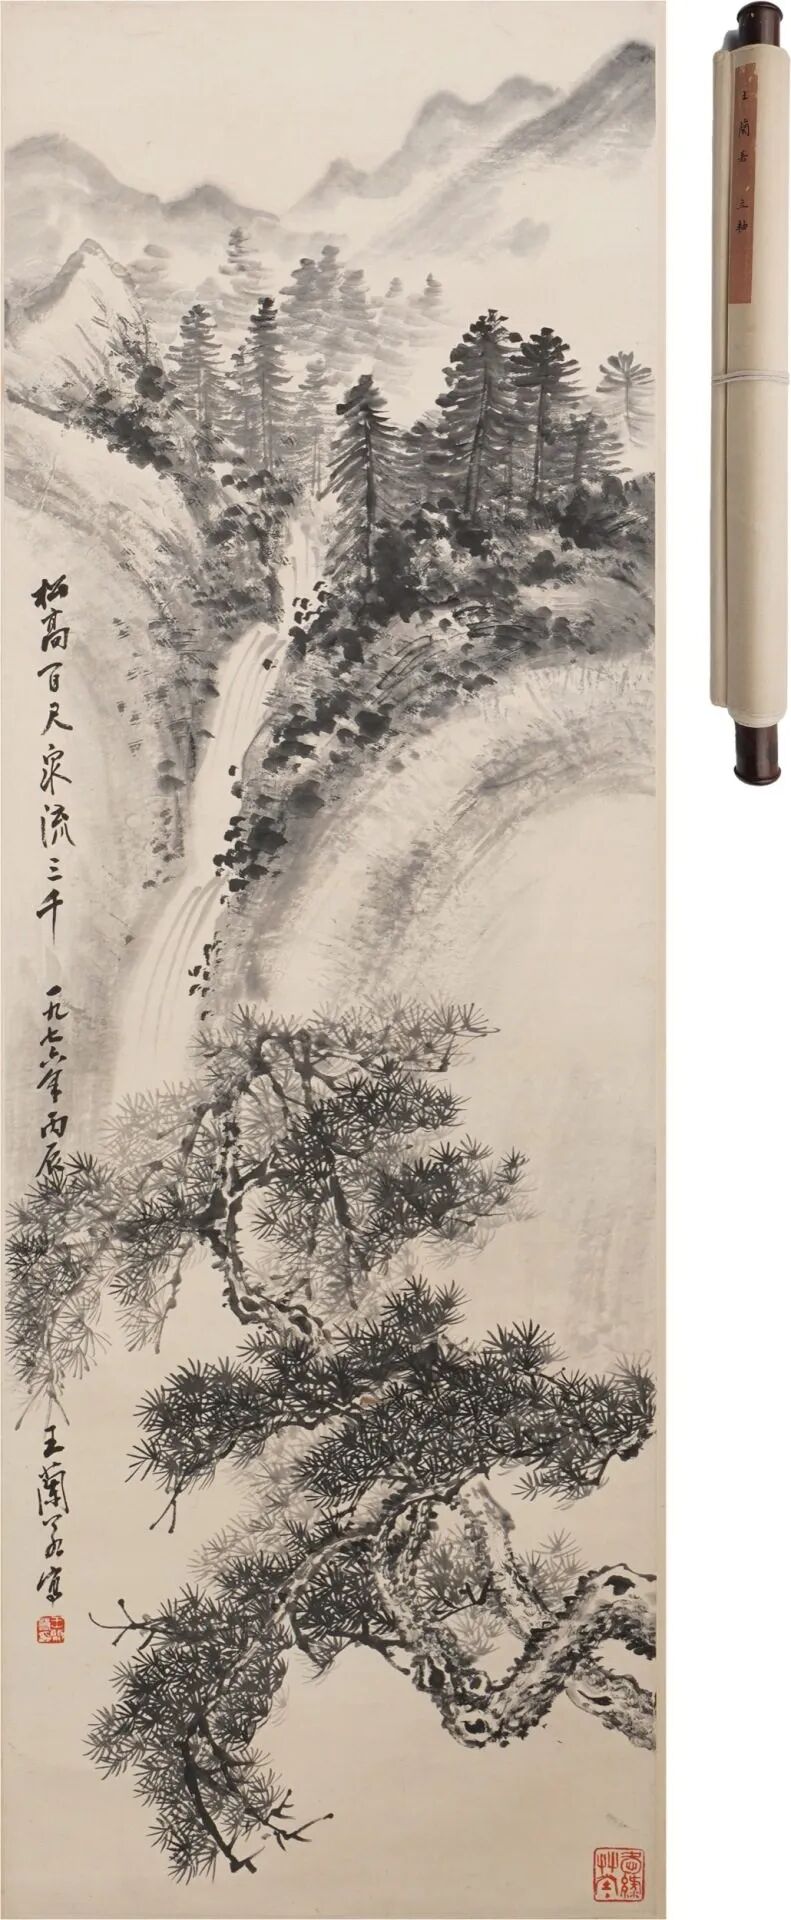 松高百尺泉流三千 一九七六年丙辰
王蘭若寫
王蘭若 立軸